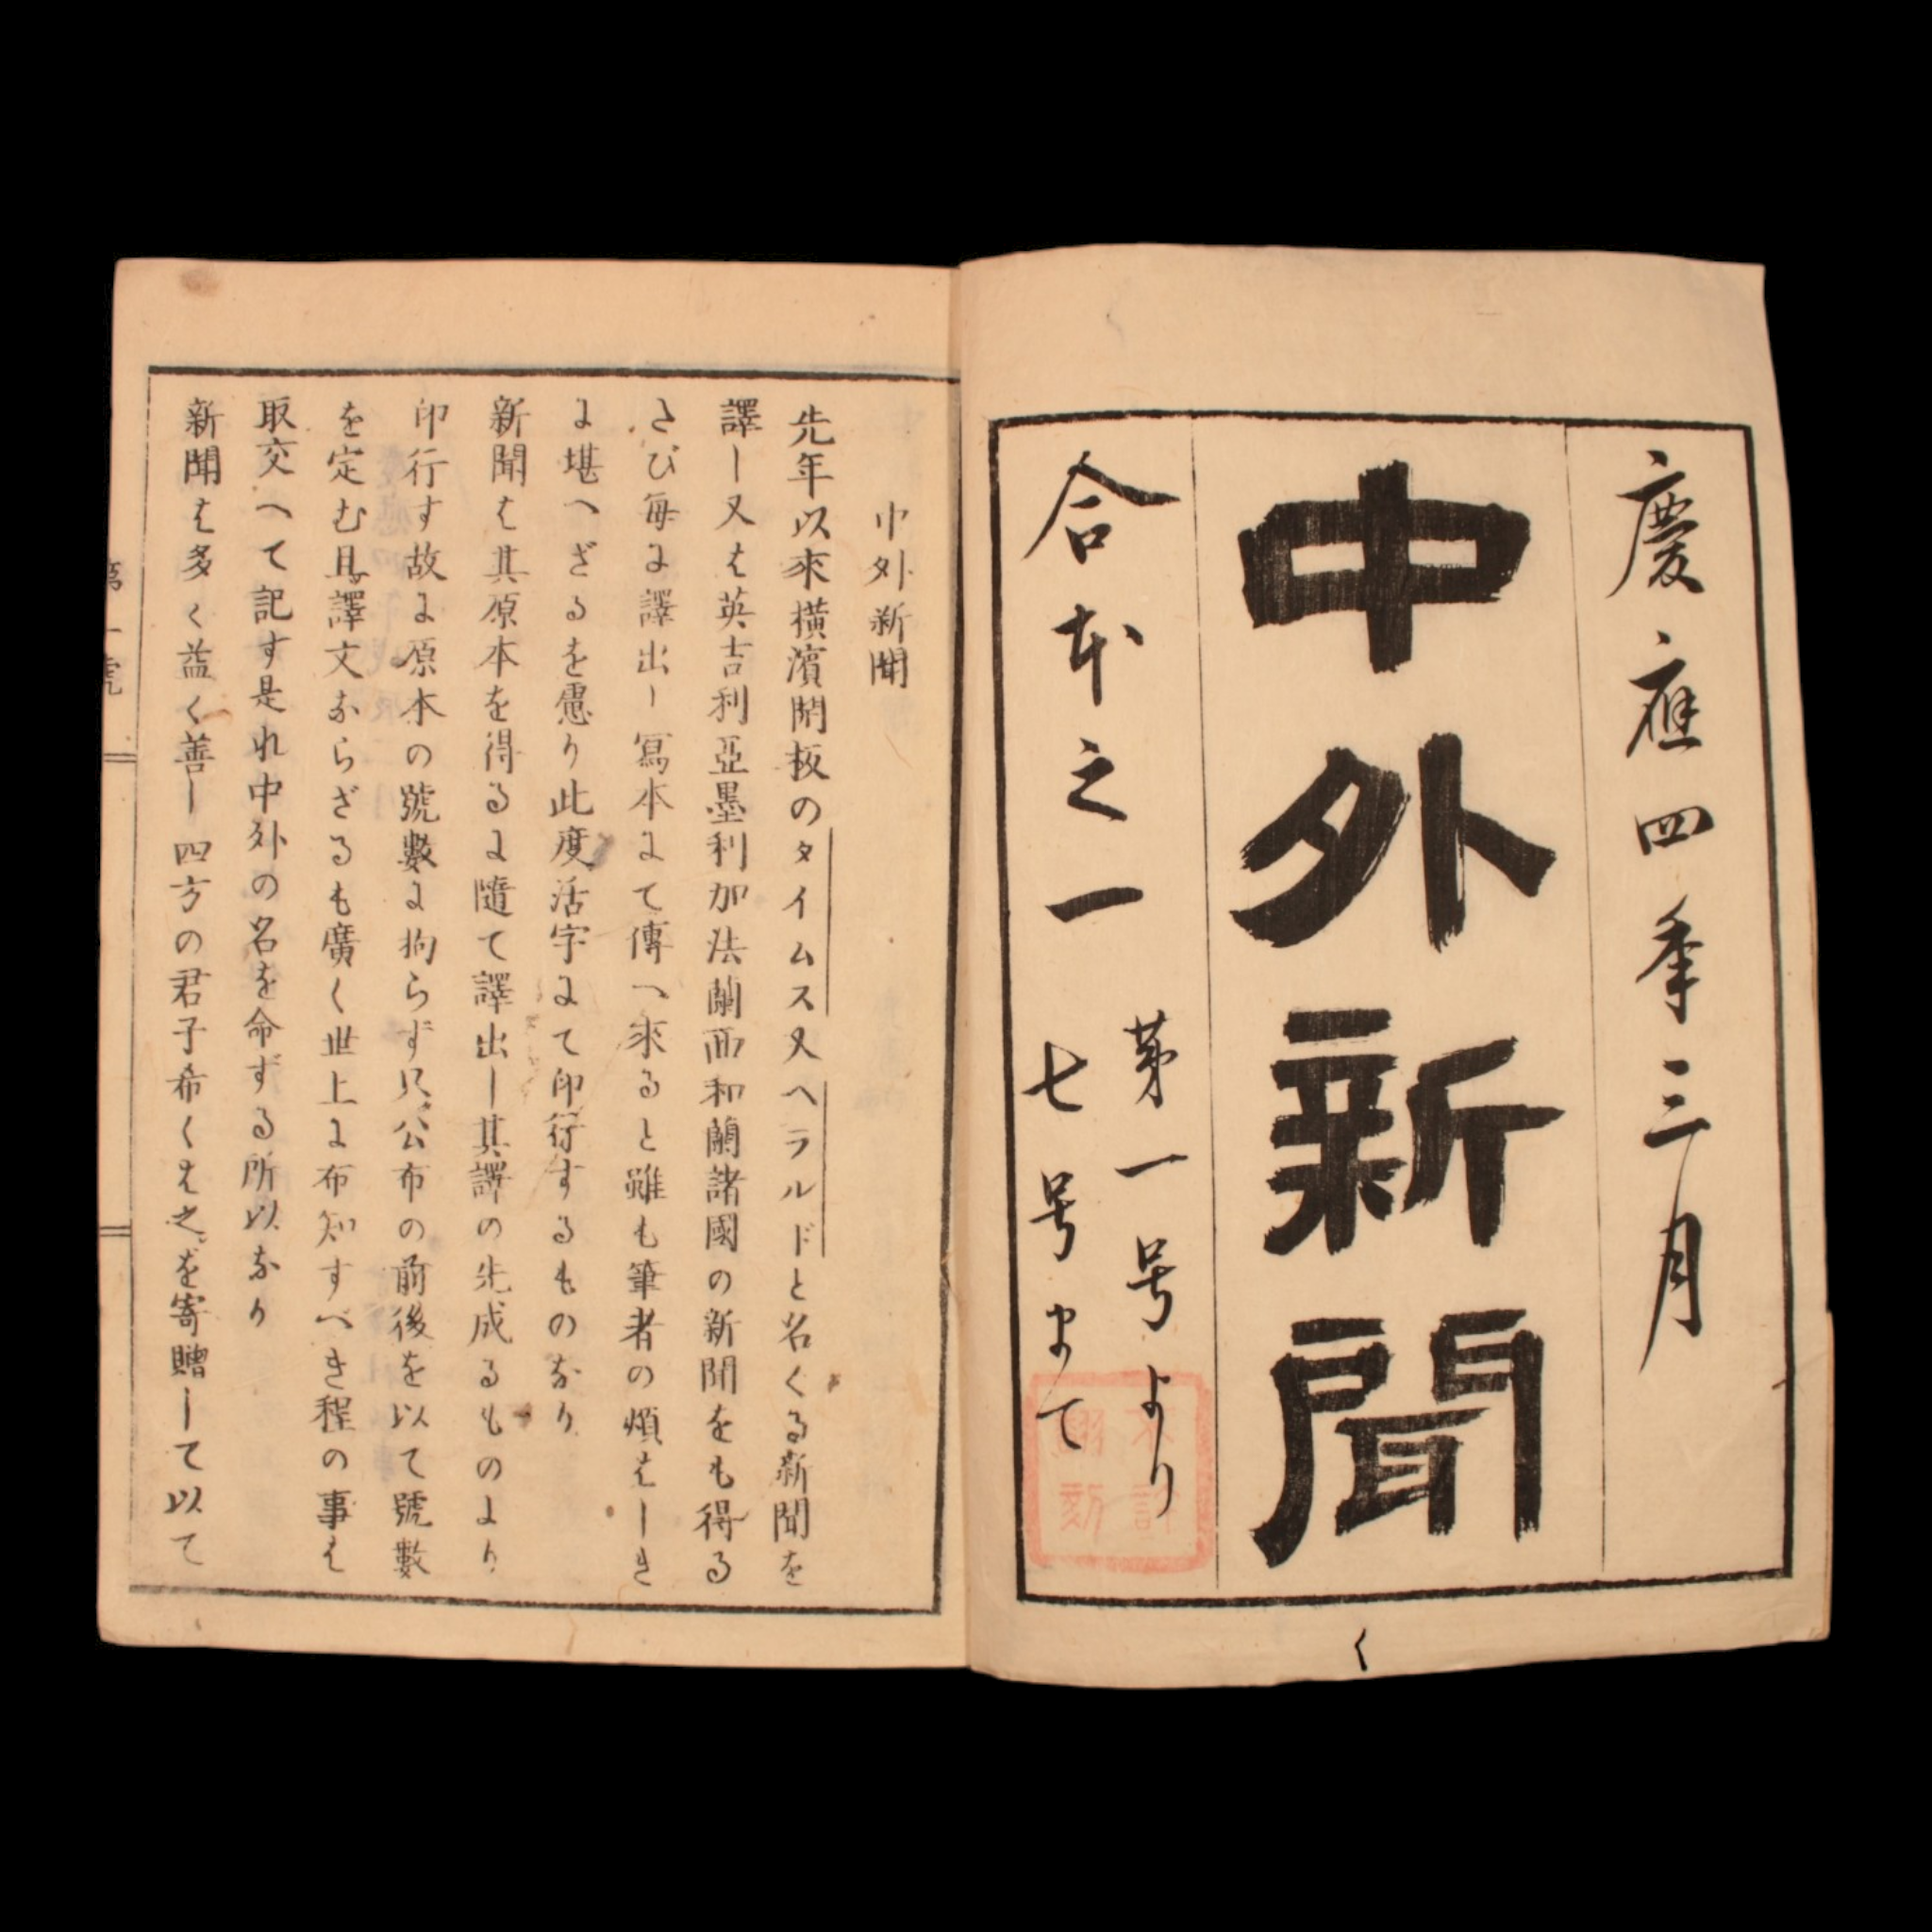 慶應四年三月
中外新聞
合本之一
第一号より
七号まて
不許
翻刻
中外新聞
先年以來横濱開板のタイムス又ヘラルドと名くる新聞を
譯し又は英吉利亞墨利加法蘭西和蘭諸國の新聞をも得る
たび毎に譯出し寫本にて傳へ來ると雖も筆者の煩はしき
に堪へざるを慮り此度活字にて印行するものなり
新聞は其原本を得るに隨て譯出し其譯の先成るものより
印行す故に原本の號數に拘らず只公布の前後を以て號數
を定む且譯文ならざるも廣く世上に布知すべき程の事は
取交へて記す是れ中外の名を命ずる所以なり
新聞は多く益く善し四方の君子希くは之を寄贈して以て
第一號